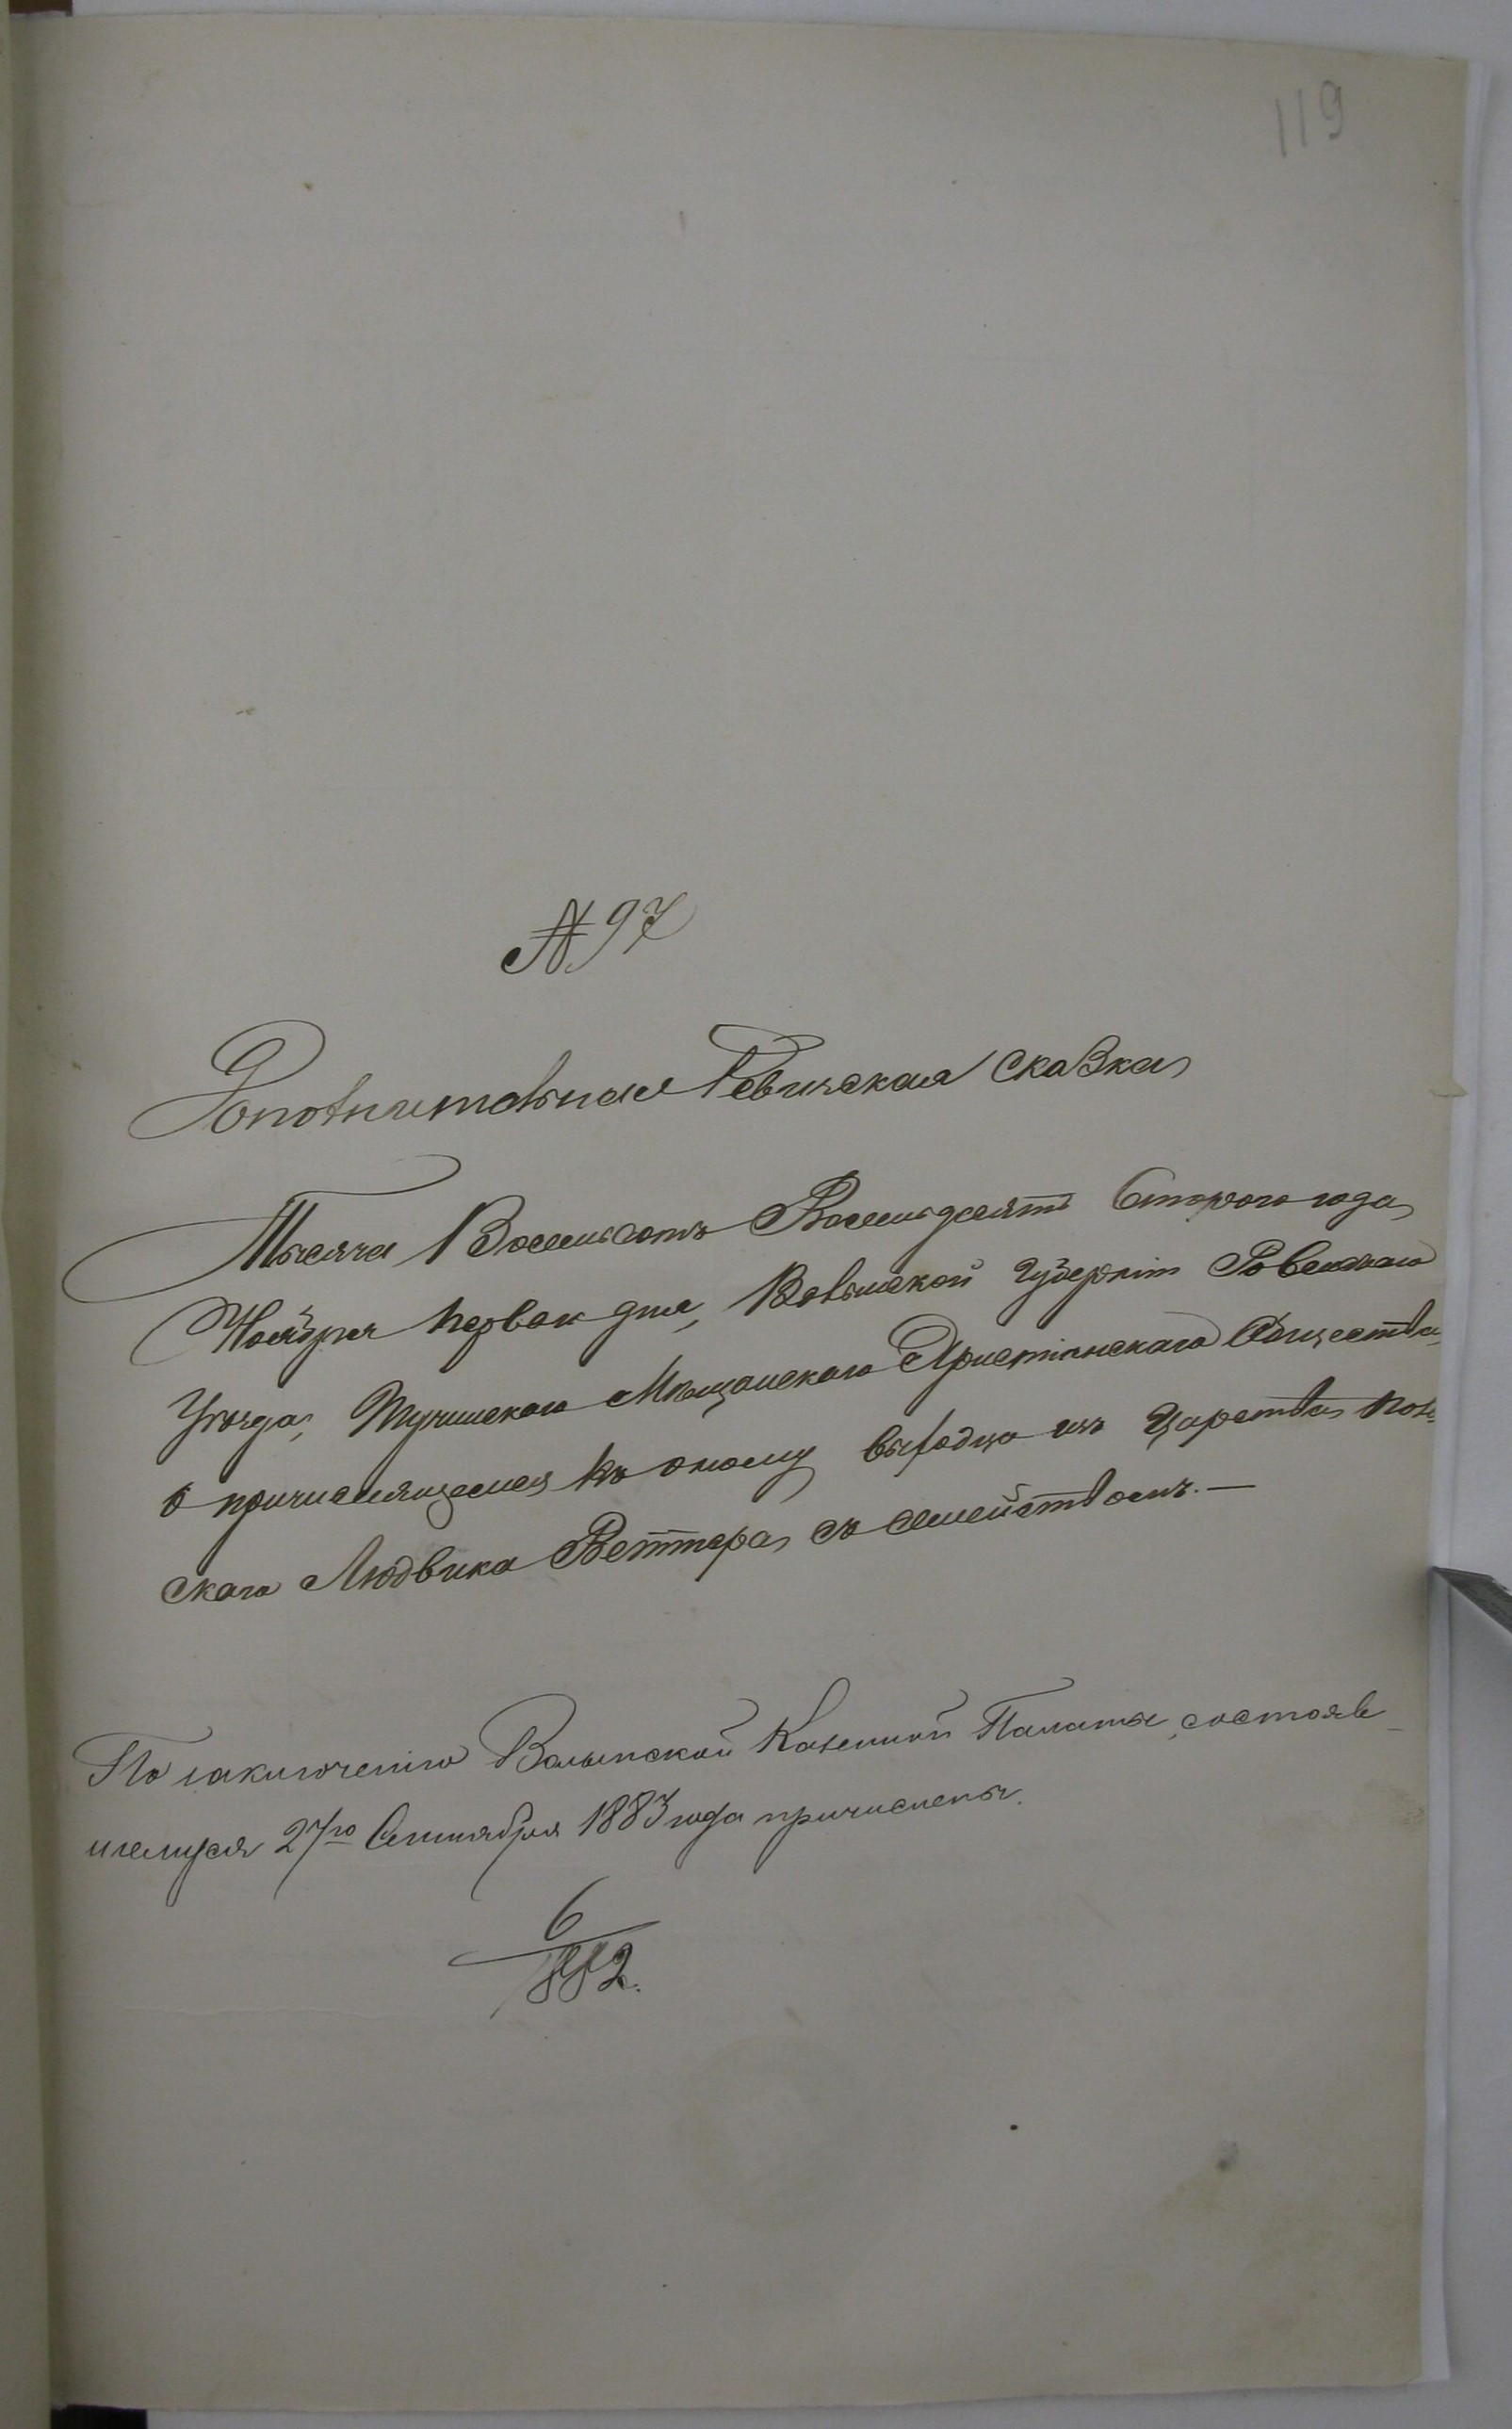 119
№ 97
Дополнительная Ревизская сказка
Тысяча Восемьсотъ Восемьдесятъ Втораго года
Ноября перваго дня, Волынской Губерніи Ровенскаго
Уѣзда, Тучинскаго Мѣщанскаго Христіанскаго Общества,
о причисляющемся къ оному выходца изъ Царства Поль-
скаго Людвика Веттера съ семействомъ. —
По заключенію Волынской Казенной Палаты, состояв-
шемуся 27го Сентября 1883 года причислены.
6
1882.